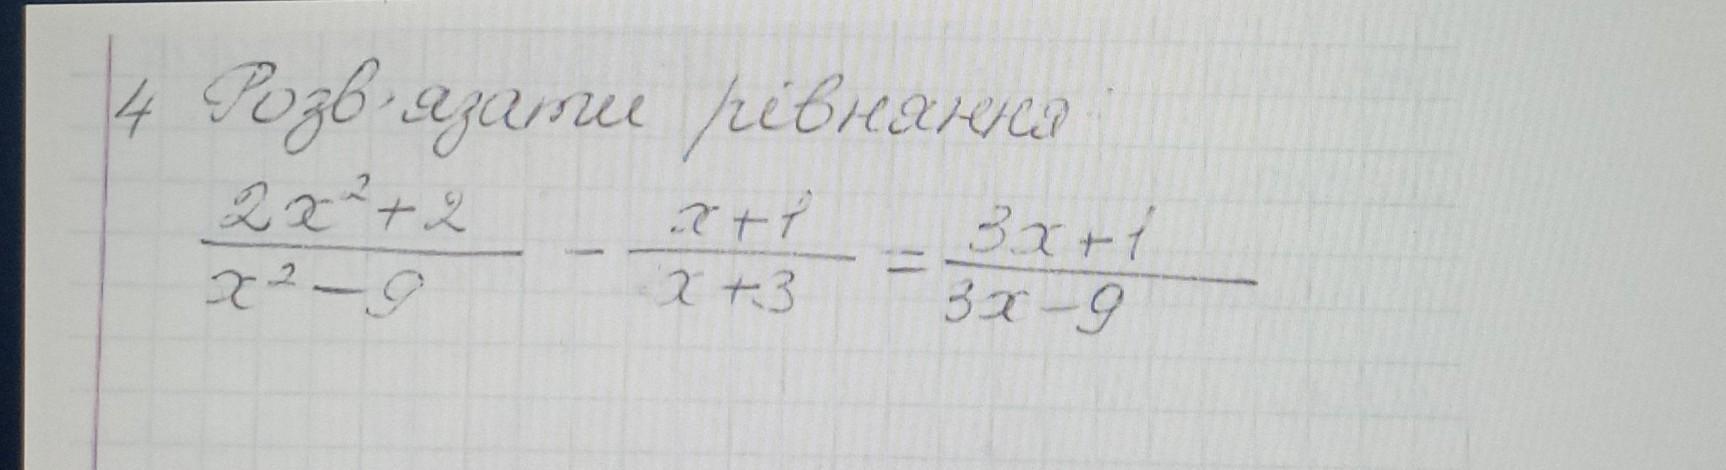 4 Розв'язати рівняння:
(2x²+2)/(x²-9) - (x+1)/(x+3) = (3x+1)/(3x-9)